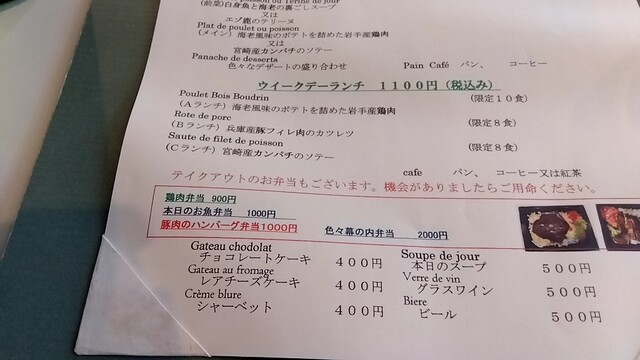 (前菜)白身魚と海老の裏ごしスープ
又は
エゾ鹿のテリーヌ
Plat de poulet ou poisson
(メイン) 海老風味のポテトを詰めた岩手産鶏肉
又は
宮崎産カンパチのソテー
Panache de desserta
色々なデザートの盛り合わせ Pain Café パン、 コーヒー
ウイークデーランチ 1100円(税込み)
Poulet Bois Boudrin
(Aランチ) 海老風味のポテトを詰めた岩手産鶏肉 (限定10食)
Rote de porc
(Bランチ) 兵庫産豚フィレ肉のカツレツ (限定8食)
Saute de filet de poisson
(Cランチ) 宮崎産カンパチのソテー (限定8食)
cafe パン、 コーヒー又は紅茶
テイクアウトのお弁当もございます。機会がありましたらご用命ください。
鶏肉弁当 900円
本日のお魚弁当 1000円
豚肉のハンバーグ弁当1000円 色々幕の内弁当 2000円
Gateau chodolat
チョコレートケーキ 400円
Gateau au fromage
レアチーズケーキ 400円
Crème blure
シャーベット 400円
Soupe de jour
本日のスープ 500円
Verre de vin
グラスワイン 500円
Biere
ビール 500円